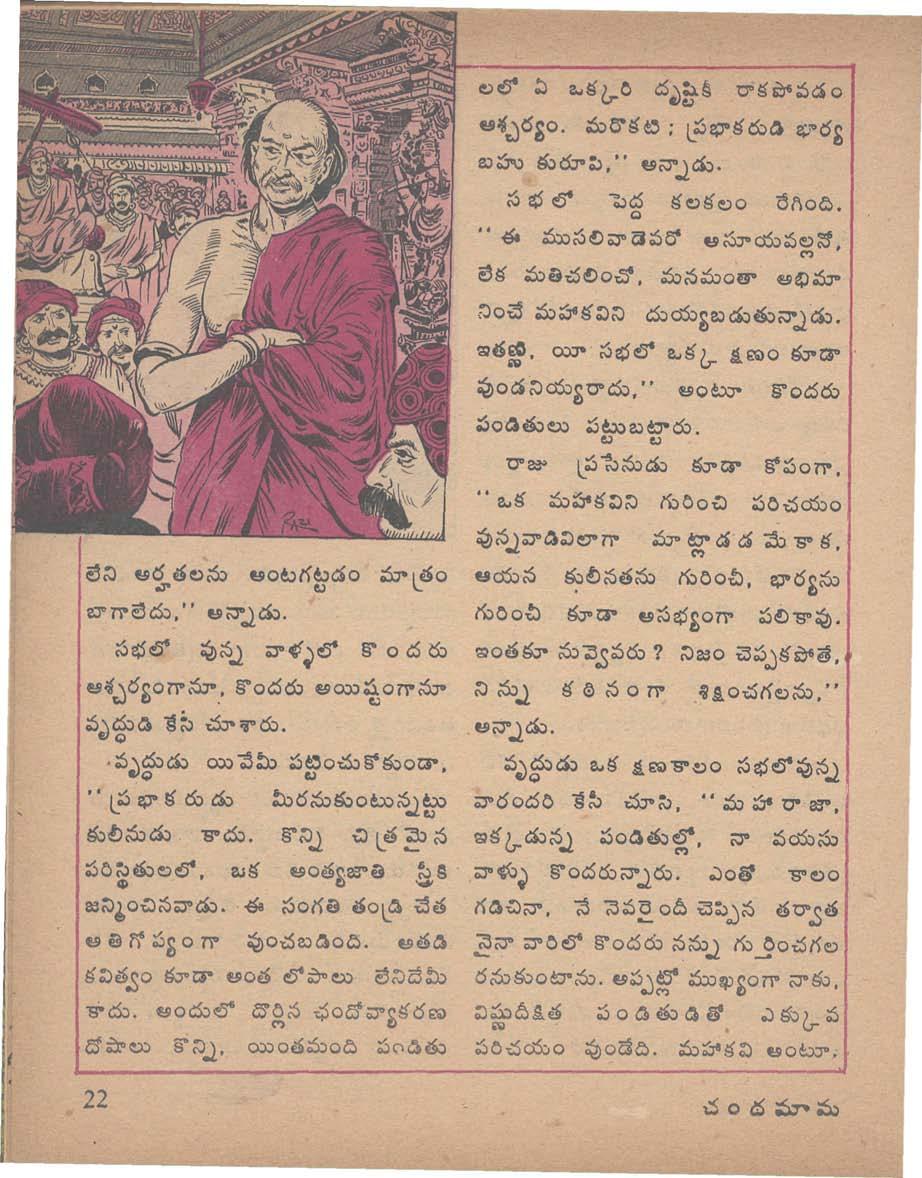 లేని అర్హతలను అంటగట్టడం మాత్రం
బాగాలేదు,'' అన్నాడు.
సభలో వున్న వాళ్ళలో కొందరు
ఆశ్చర్యంగానూ, కొందరు అయిష్టంగానూ
వృద్ధుడి కేసి చూశారు.
వృద్ధుడు యివేమీ పట్టించుకోకుండా,
''ప్రభాకరుడు మీరనుకుంటున్నట్టు
కులీనుడు కాదు. కొన్ని చిత్రమైన
పరిస్థితులలో, ఒక అంత్యజాతి స్త్రీకి
జన్మించినవాడు. ఈ సంగతి తండ్రి చేత
అతిగోప్యంగా వుంచబడింది. అతడి
కవిత్వం కూడా అంత లోపాలు లేనిదేమీ
కాదు. అందులో దొర్లిన ఛందోవ్యాకరణ
దోషాలు కొన్ని, యింతమంది పండితు
లలో ఏ ఒక్కరి దృష్టికీ రాకపోవడం
ఆశ్చర్యం. మరొకటి ; ప్రభాకరుడి భార్య
బహు కురూపి,'' అన్నాడు.
సభలో పెద్ద కలకలం రేగింది.
''ఈ ముసలివాడెవరో అసూయవల్లనో,
లేక మతిచలించో, మనమంతా అభిమా
నించే మహాకవిని దుయ్యబడుతున్నాడు.
ఇతణ్ణి, యీ సభలో ఒక్క క్షణం కూడా
వుండనియ్యరాదు,'' అంటూ కొందరు
పండితులు పట్టుబట్టారు.
రాజు ప్రసేనుడు కూడా కోపంగా,
''ఒక మహాకవిని గురించి పరిచయం
వున్నవాడివిలాగా మాట్లాడడమేకాక,
ఆయన కులీనతను గురించీ, భార్యను
గురించీ కూడా అసభ్యంగా పలికావు.
ఇంతకూ నువ్వెవరు? నిజం చెప్పకపోతే,
నిన్ను కఠినంగా శిక్షించగలను,''
అన్నాడు.
వృద్ధుడు ఒక క్షణకాలం సభలోవున్న
వారందరి కేసీ చూసి, ''మహారాజా,
ఇక్కడున్న పండితుల్లో, నా వయసు
వాళ్ళు కొందరున్నారు. ఎంతో కాలం
గడిచినా, నే నెవరైందీ చెప్పిన తర్వాత
నైనా వారిలో కొందరు నన్ను గుర్తించగల
రనుకుంటాను. అప్పట్లో ముఖ్యంగా నాకు,
విష్ణుదీక్షిత పండితుడితో ఎక్కువ
పరిచయం వుండేది. మహాకవి అంటూ,
22
చందమామ